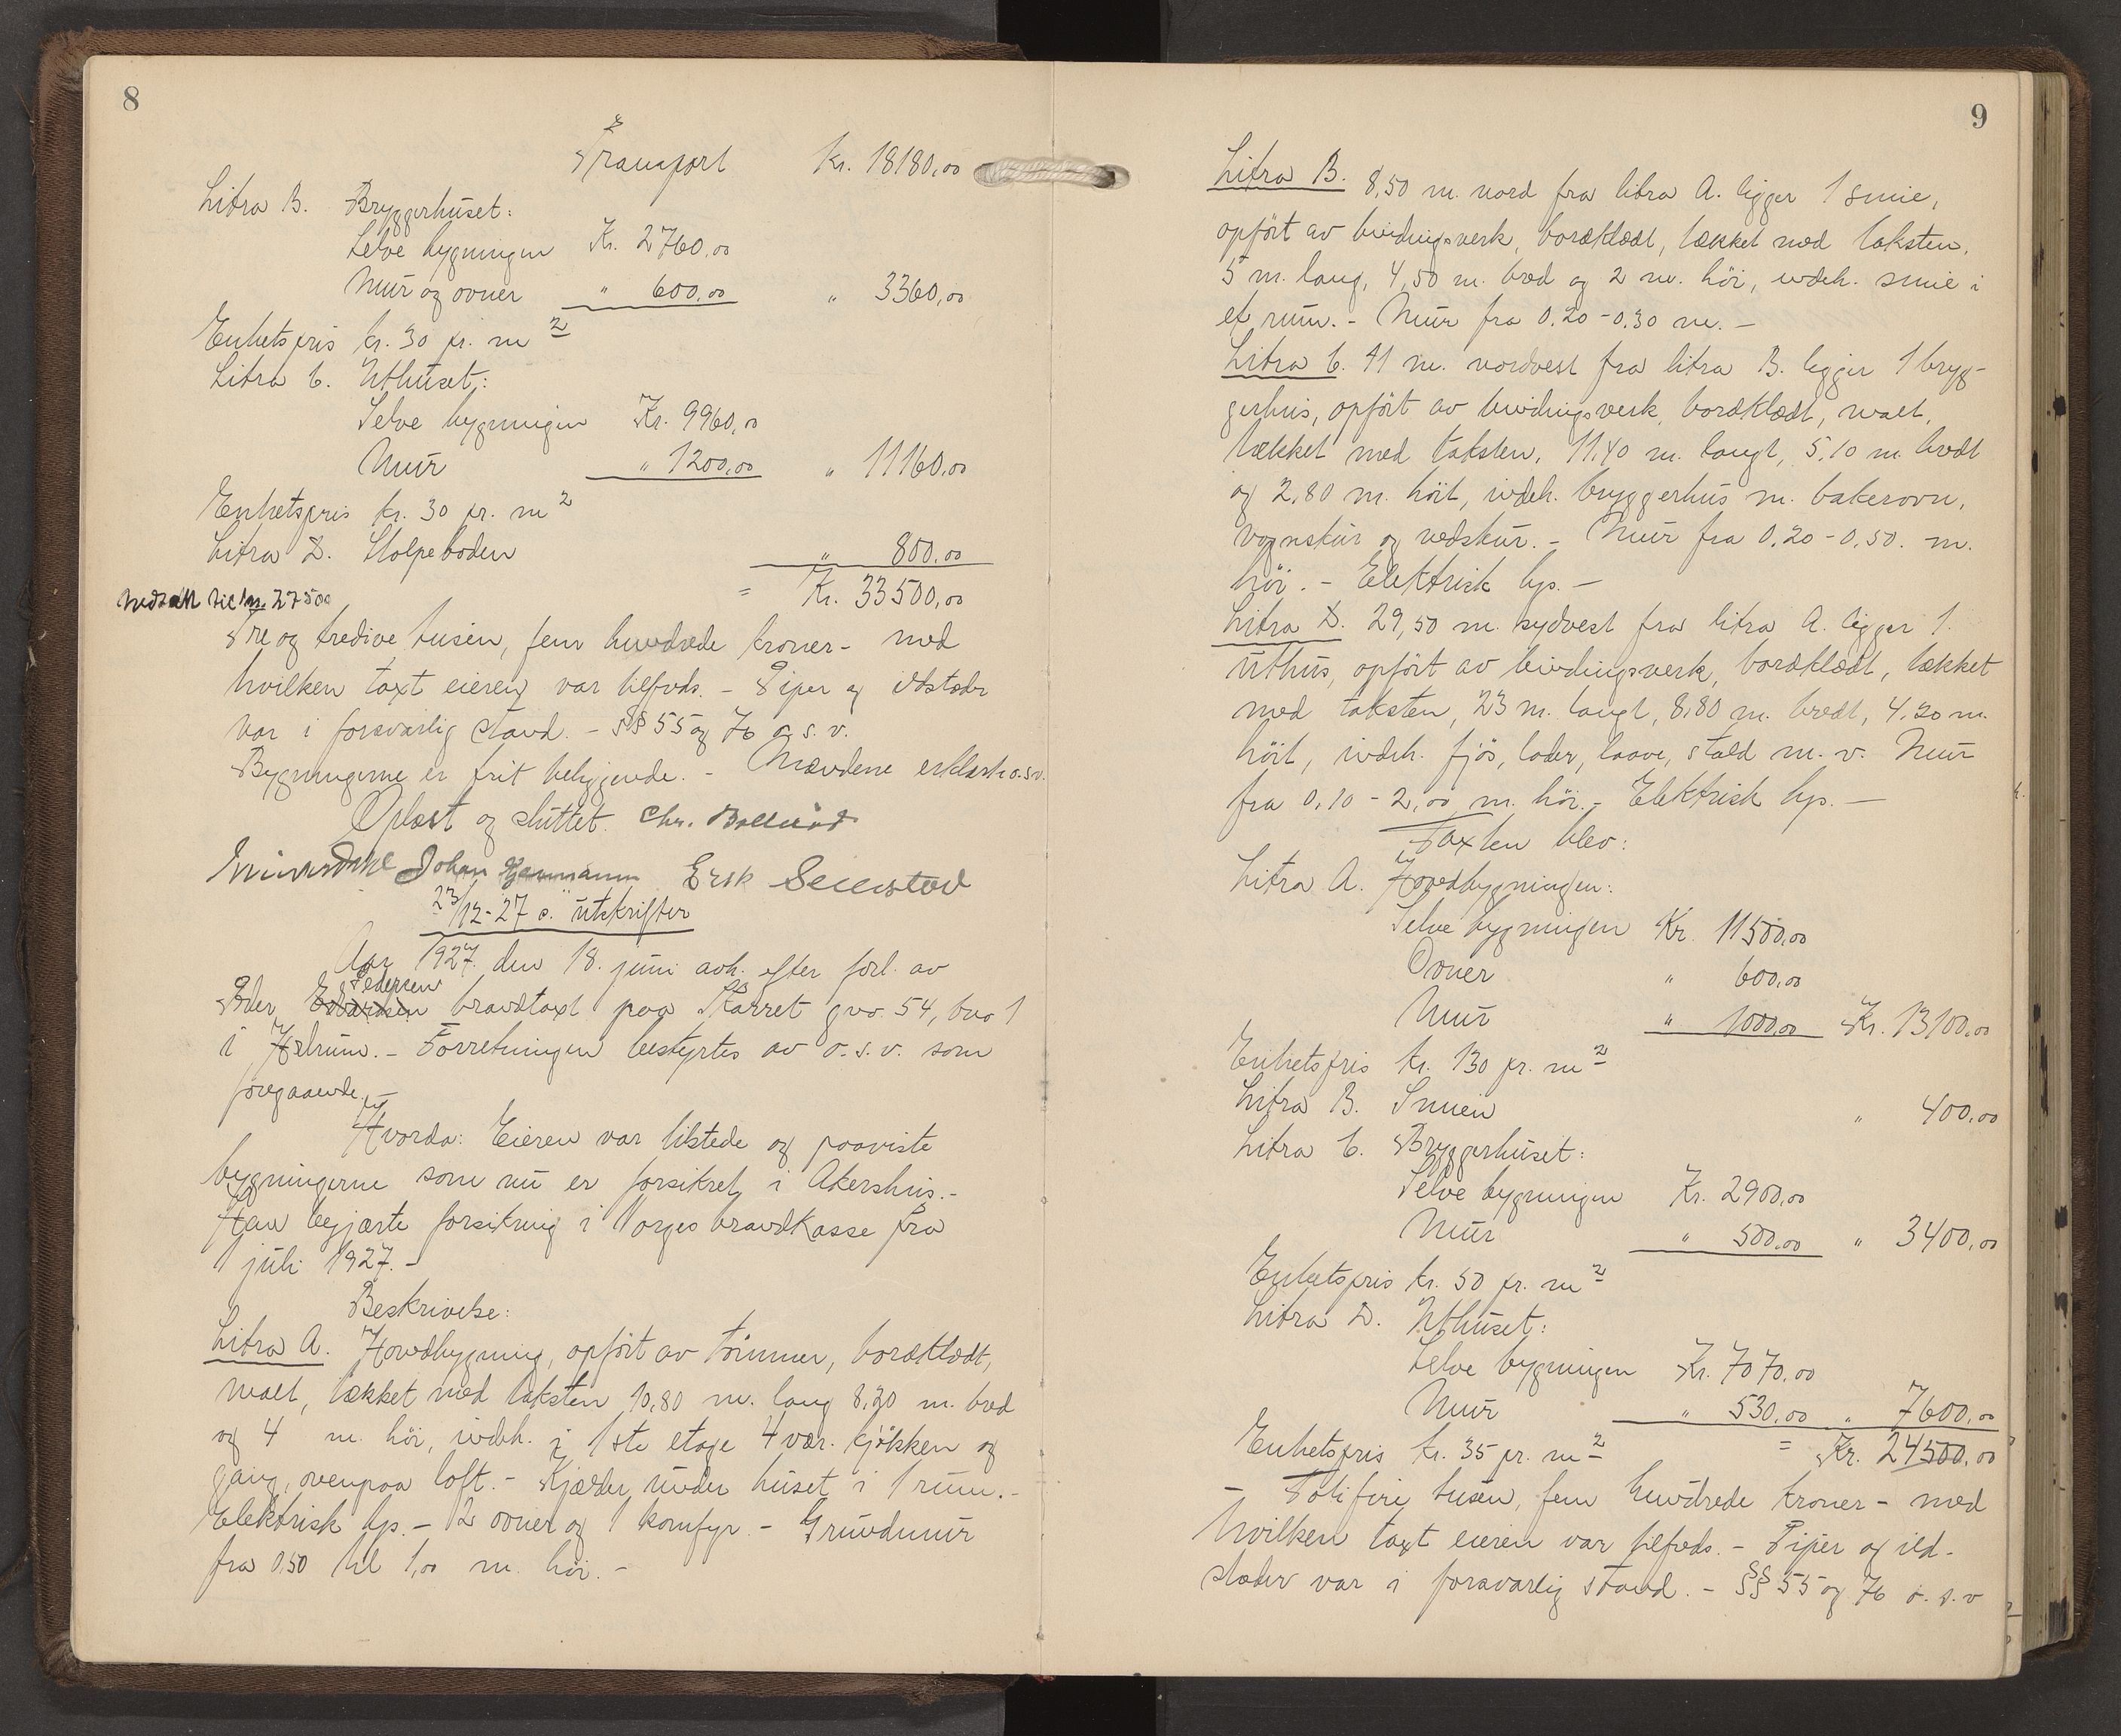 8
Transport Kr. 18180,00
Litra B. Bryggerhuset:
Selve bygningen Kr. 2760,00
Mur og ovner " 600,00 " 3360,00
Enhetspris kr. 30 pr. m2
Litra C. Uthuset:
Selve bygningen Kr. 9960,00
Mur " 1200,00 " 11160,00
Enhetspris kr. 30 pr. m2
Litra D. Stolpeboden " 800,00
= Kr. 33500,00
Nedsatt til kr. 27500
Tre og tredive tusen, fem hundrede kroner - med
hvilken taxt eieren var tilfreds. - Piper og ildstæder
var i forsvarlig stand. - §§ 55 og 76 o. s. v.
Bygningerne er frit beliggende. - Mændene erklært o.s.v.
Oplæst og sluttet. Chr. Bollerud
Johan Hermansen Erik Seierstad
23/12-27 s. utskrifter
Aar 1927. den 18. juni avh. efter forl. av
Peder Edvardsen Pedersen brandtaxt paa Karret gno. 54, bno 1
i Høland. - Forretningen bestyrtes av o. s. v. som
foregaaende.
Hvorda: Eieren var tilstede og paaviste
bygningerne som nu er forsikret i Akershus. -
Han begjærte forsikring i Norges brandkasse fra
1 juli 1927. -
Beskrivelse:
Litra A. Hovedbygning, opført av tømmer, bordklædt,
malt, tækket med taksten 10,80 m. lang 8,20 m. bred
og 4 m. høi, indeh. i 1ste etage 4 vær. kjøkken og
gang, ovenpaa loft. - Kjælder under huset i 1 rum. -
Elektrisk lys. - 2 ovner og 1 komfyr. - Grundmur
fra 0,50 til 1,00 m. høi. -
9
Litra B. 8,50 m. nord fra litra A. ligger 1 smie,
opført av bindingsverk, bordklædt, tækket med taksten,
5 m. lang, 4,50 m. bred og 2 m. høi, indeh. smie i
et rum. - Mur fra 0.20 - 0.30 m. -
Litra C. 41 m. nordvest fra litra B. ligger 1 bryg-
gerhus, opført av bindingsverk, bordklædt, malt,
tækket med taksten, 11.40 m. langt, 5,10 m. bredt
og 2,80 m. høit, indeh. bryggerhus m. bakerovn,
vognskur og vedskur. - Mur fra 0,20 - 0,50. m.
høi. - Elektrisk lys. -
Litra D. 29,50 m. sydvest fra litra A. ligger 1
uthus, opført av bindingsverk, bordklædt, tækket
med taksten, 23 m. langt, 8,80 m. bredt, 4.20 m.
høit, indeh. fjøs, lader, laave, stald m. v. Mur
fra 0,10 - 2,00 m. høi. - Elektrisk lys. -
Taxten blev:
Litra A. Hovedbygningen:
Selve bygningen Kr. 11500,00
Ovner " 600,00
Mur " 1000,00 Kr. 13100,00
Enhetspris kr. 130 pr. m2
Litra B. Smien " 400,00
Litra C. Bryggerhuset:
Selve bygningen Kr. 2900,00
Mur " 500,00 " 3400,00
Enhetspris kr. 50 pr. m2
Litra D. Uthuset:
Selve bygningen Kr. 7070,00
Mur " 530,00 " 7600,00
Enhetspris kr. 35 pr. m2 = Kr. 24500,00
- Toti fire tusen, fem hundrede kroner - med
hvilken taxt eieren var tilfreds. - Piper og ild-
stæder var i forsvarlig stand. - §§ 55 og 76 o. s. v